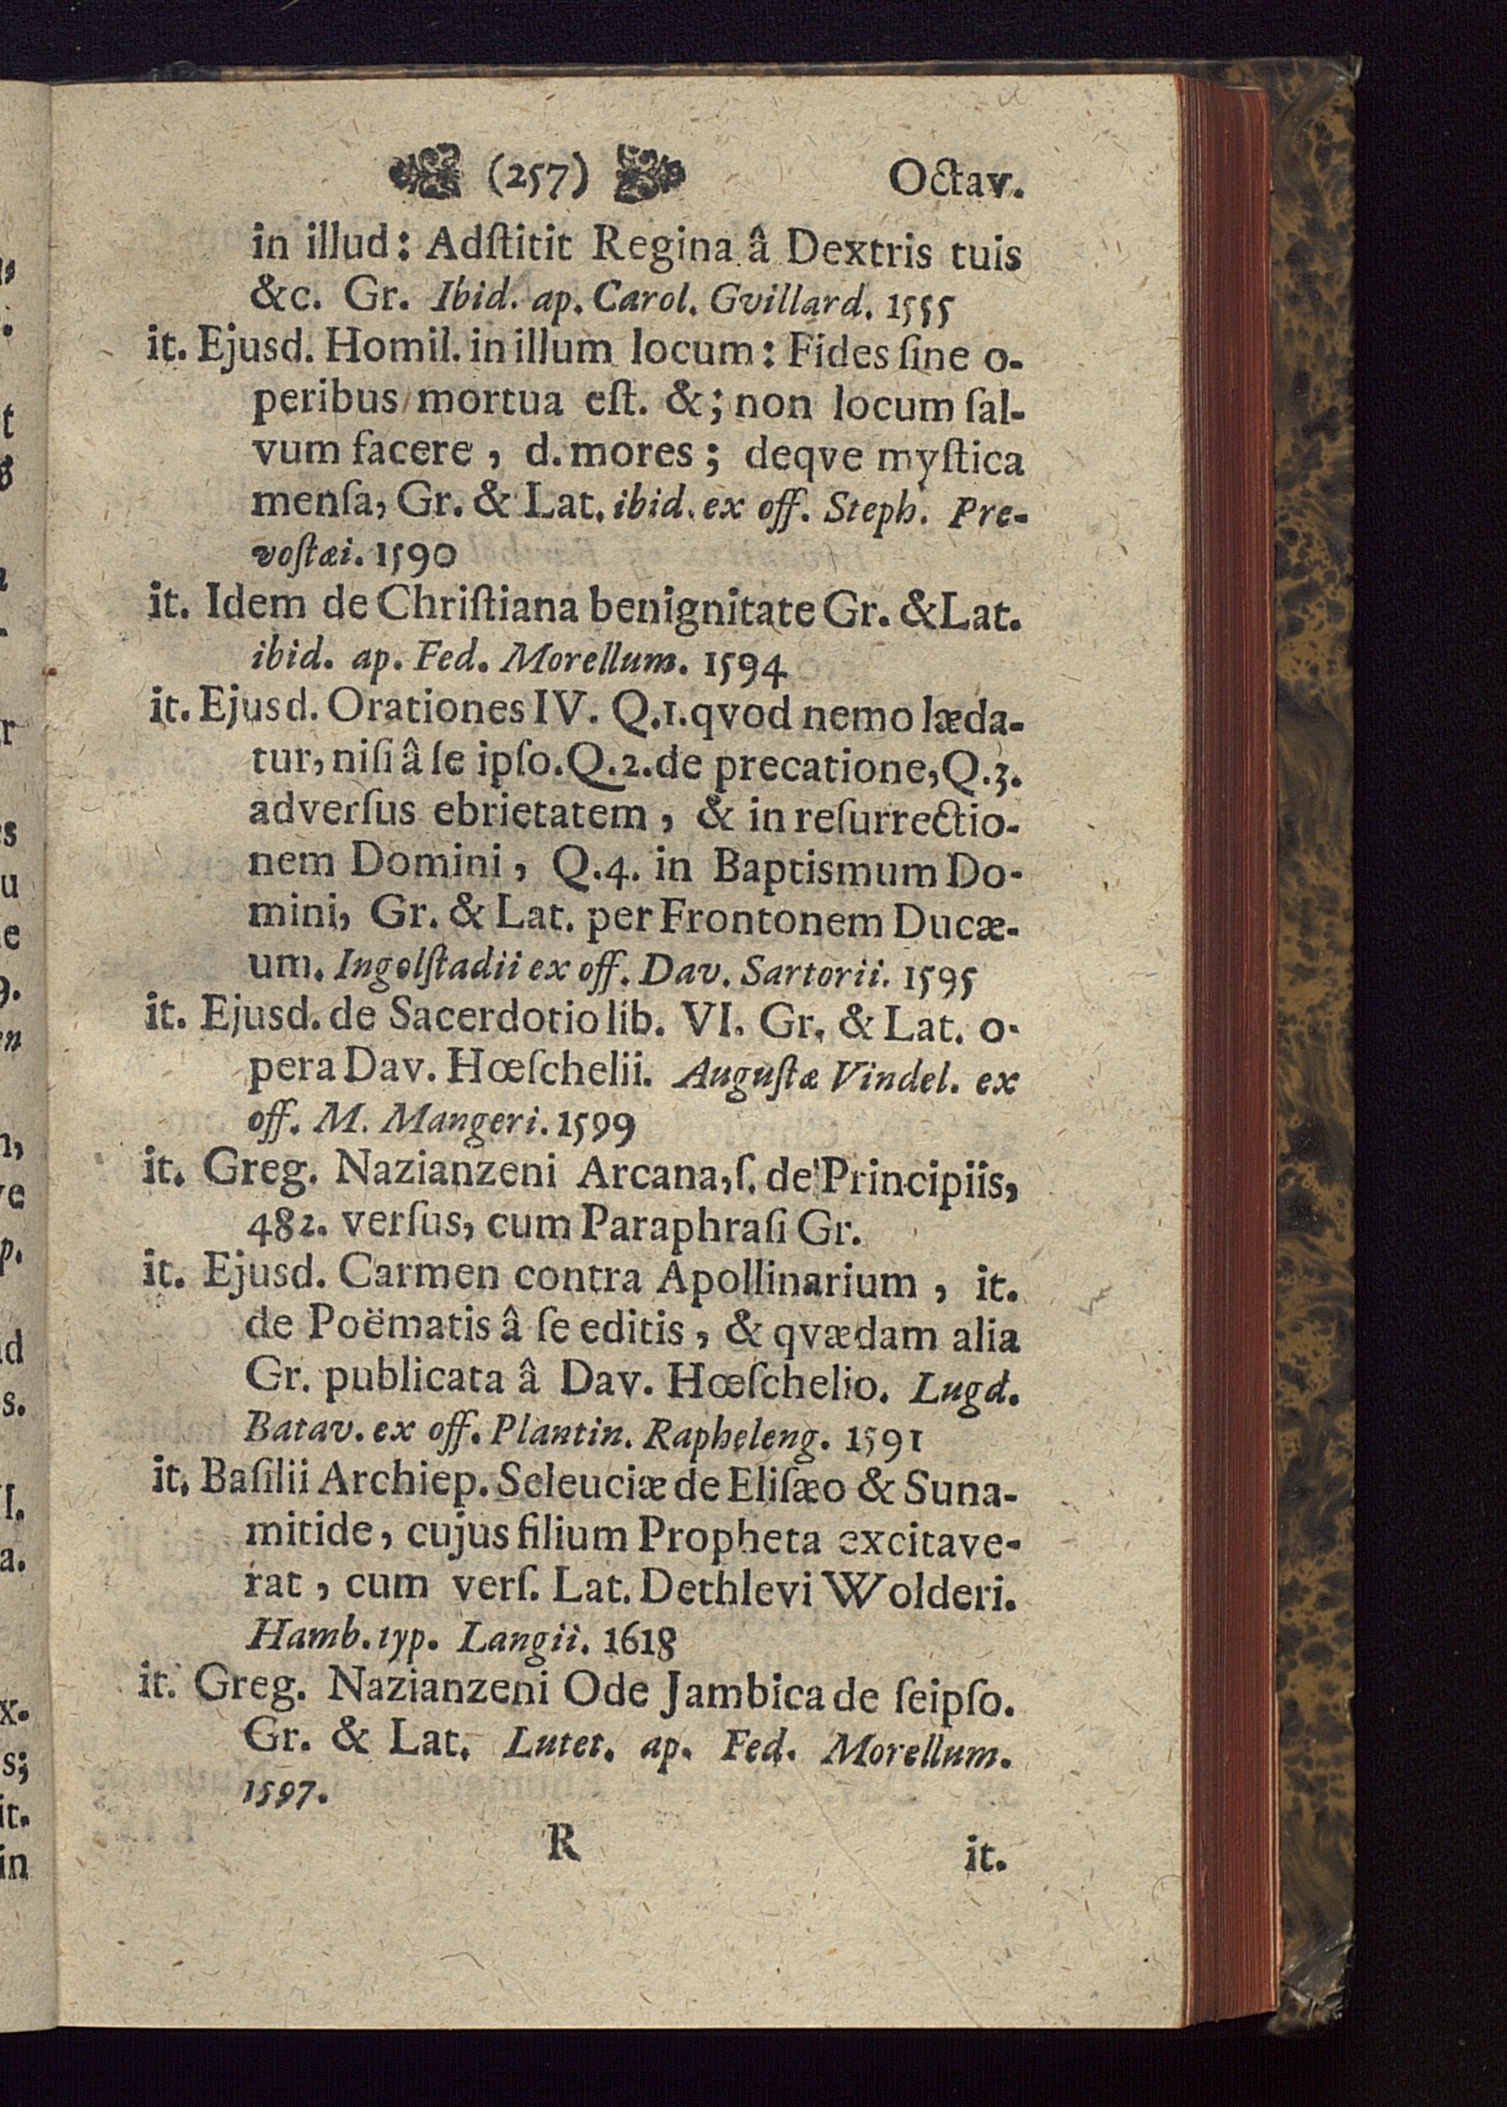 (257) Octav.
in illud: Adſtitit Regina â Dextris tuis
&c. Gr. Ibid. ap. Carol. Gvillard. 1555
it. Ejusd. Homil. in illum locum: Fides ſine o-
peribus mortua eſt. &; non locum ſal-
vum facere, d. mores; deqve myſtica
menſa, Gr. & Lat. ibid. ex off. Steph. Pre-
voſtæi. 1590
it. Idem de Chriſtiana benignitate Gr. & Lat.
ibid. ap. Fed. Morellum. 1594
it. Ejusd. Orationes IV. Q.1. qvod nemo læda-
tur, niſi â ſe ipſo. Q.2. de precatione, Q.3.
adverſus ebrietatem, & in reſurrectio-
nem Domini, Q.4. in Baptismum Do-
mini, Gr. & Lat. per Frontonem Ducæ-
um. Ingolſtadii ex off. Dav. Sartorii. 1595
it. Ejusd. de Sacerdotio lib. VI. Gr. & Lat. o-
pera Dav. Hœſchelii. Auguſtæ Vindel. ex
off. M. Mangeri. 1599
it. Greg. Nazianzeni Arcana, ſ. de Principiis,
482. verſus, cum Paraphraſi Gr.
it. Ejusd. Carmen contra Apollinarium, it.
de Poëmatis â ſe editis, & qvædam alia
Gr. publicata â Dav. Hœſchelio. Lugd.
Batav. ex off. Plantin. Rapheleng. 1591
it. Baſilii Archiep. Seleuciæ de Eliſæo & Suna-
mitide, cujus filium Propheta excitave-
rat, cum verſ. Lat. Dethlevi Wolderi.
Hamb. typ. Langii. 1618
it. Greg. Nazianzeni Ode Jambica de ſeipſo.
Gr. & Lat. Lutet. ap. Fed. Morellum.
1597.
R it.